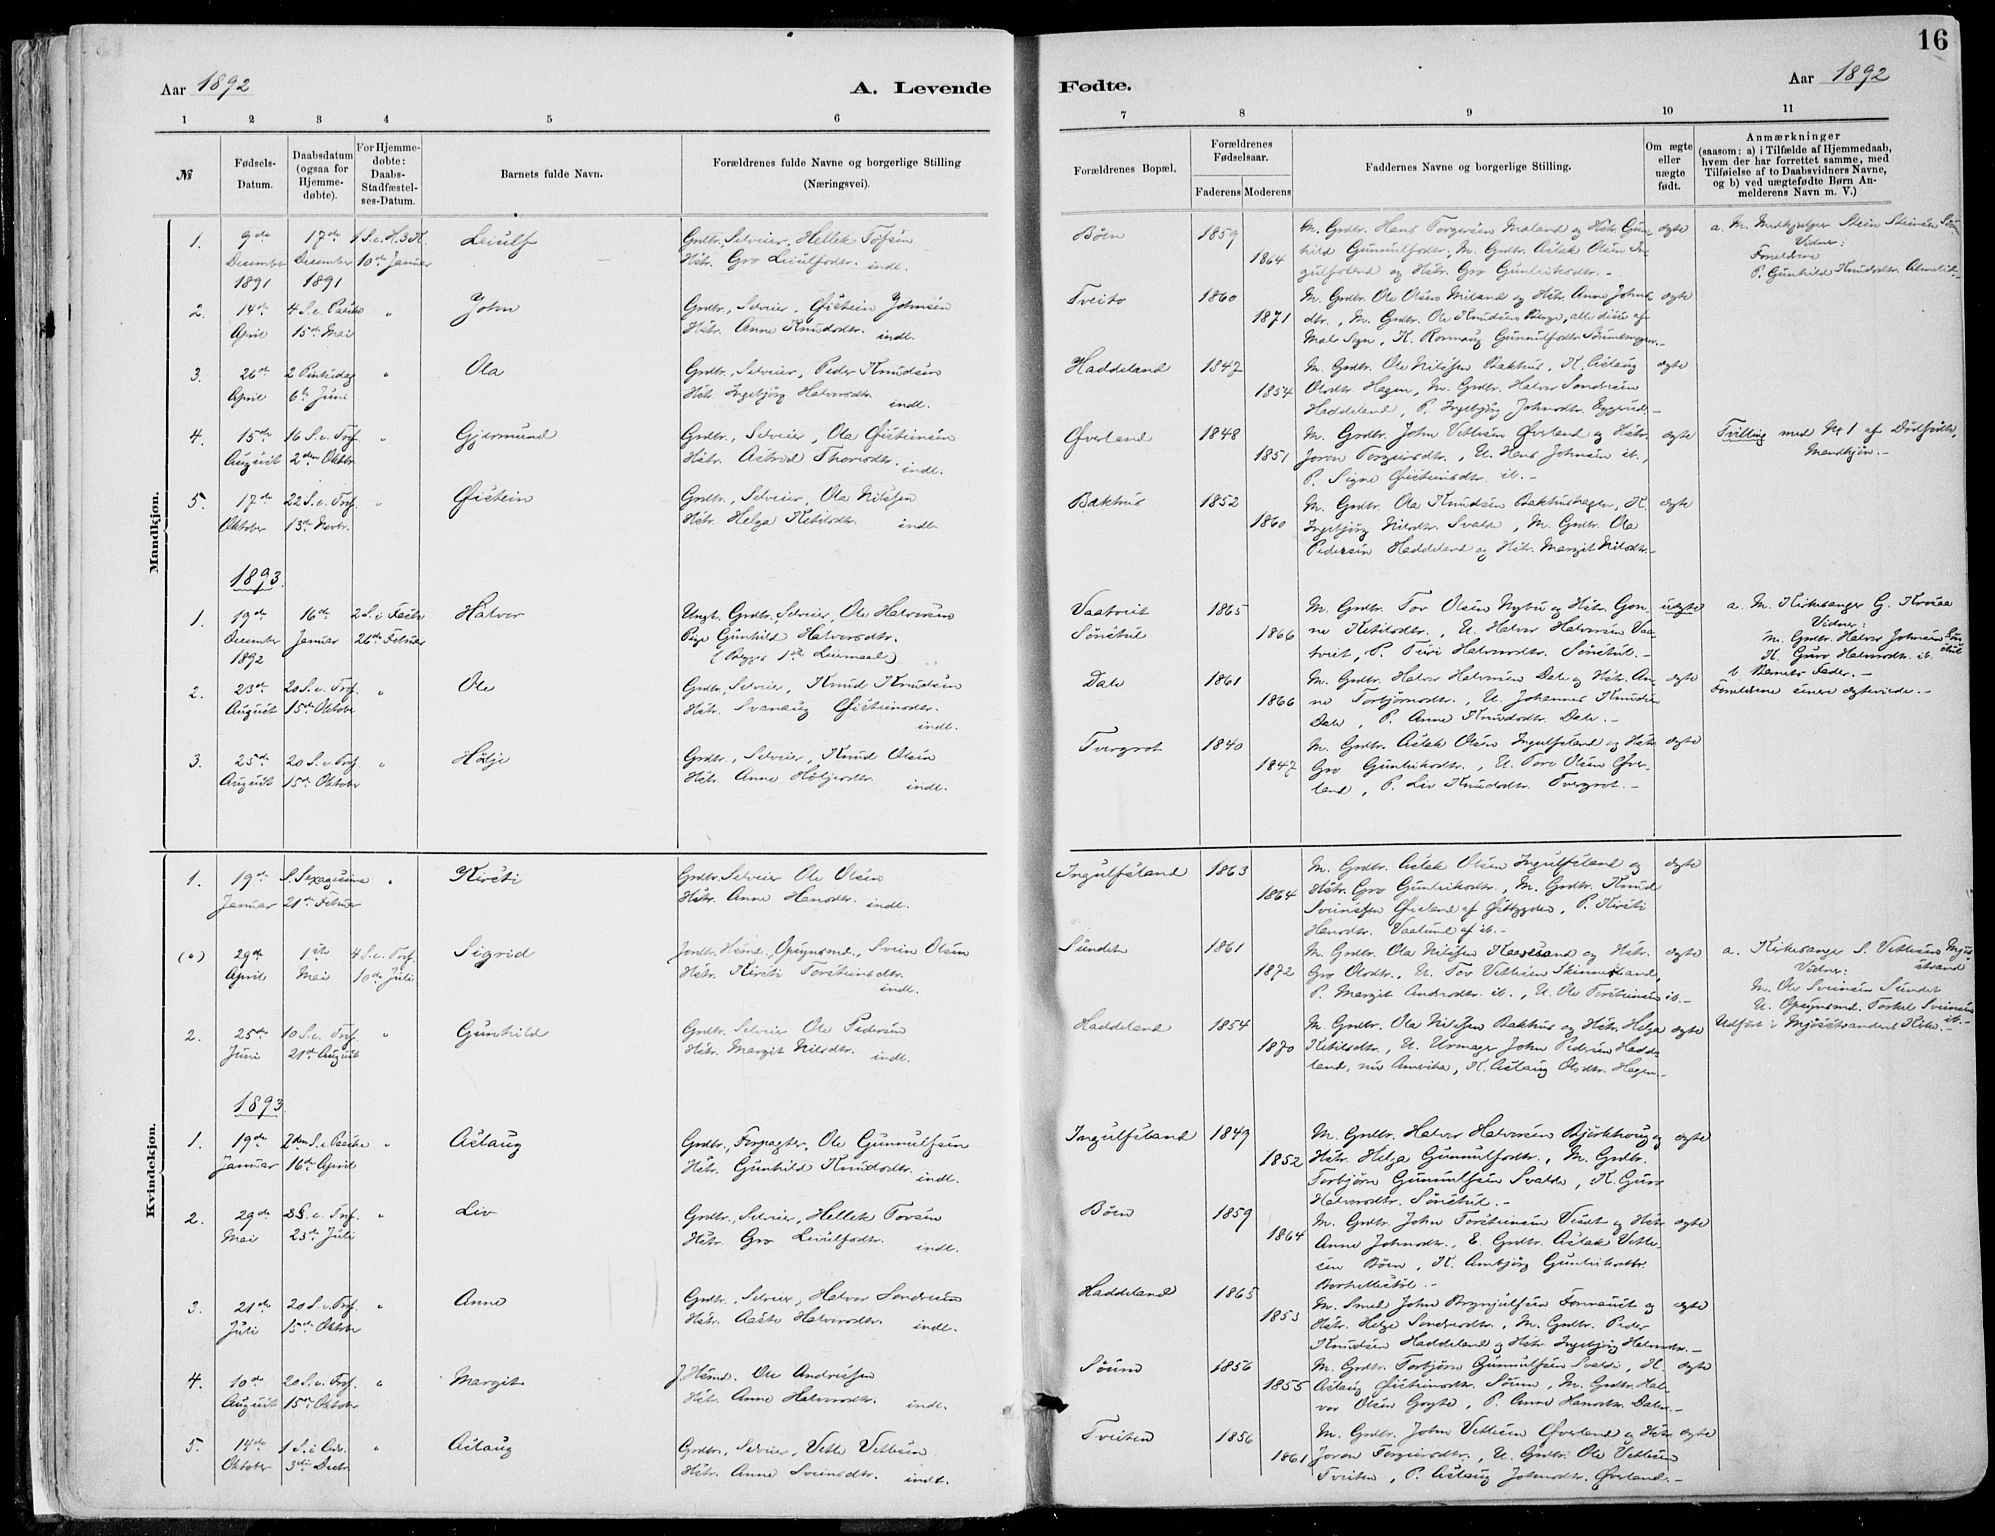 16
Aar 1892 A. Levende Fødte. Aar 1892
1 2 3 4 5 6 7 8 9 10 11
№
Fødsels-Datum.
Daabsdatum (ogsaa for Hjemmedøbte).
For Hjemmedøbte: Daabs-Stadfæstelses-Datum.
Barnets fulde Navn.
Forældrenes fulde Navne og borgerlige Stilling (Næringsvei).
Forældrenes Bopæl.
Forældrenes Fødselsaar.
Faderens Moderens
Faddernes Navne og borgerlige Stilling.
Om ægte eller uægte født.
Anmærkninger (saasom: a) i Tilfælde af Hjemmedaab, hvem der har forrettet samme, med Tilføielse af to Daabsvidners Navne, og b) ved uægtefødte Børn Anmelderens Navn m. V.)
Mandkjøn.
1. 9de 17de 1 S. e. H. 3 K. Leiulf Grdbr., Selveier, Hellek Tovsen Bøen 1859 M. Grdbr. Hans Torgersen Maland og Hstr. Gun- ægte a. M. Medhjelper Stein Steinsen
December December 10de Januar Hstr. Gro Leiulfsdtr. indl. 1864 hild Gunnulfsdtr., M. Grdbr. Aslak Olsen In- Vidner:
1891 1891 gulfsland og Hstr. Gro Gunleiksdtr. Forældrene
P. Gunhild Knudsdtr.
2. 14de 4 S. e. Paaske „ John Grdbr., Selveier, Øistein Johnsen Tveito 1860 M. Grdbr. Ole Olsen Miland og Hstr. Anne Johns- ægte
April 15de Mai Hstr. Anne Knudsdtr. indl. 1871 dtr., M. Grdbr. Ole Knudsen Berge, alle disse af
Mæls Sogn, K. Ronnaug Gunnulfsdtr.
3. 26de 2 Pintsedag „ Ola Grdbr., Selveier, Peder Knudsen Haddeland 1847 M. Grdbr. Ole Nilssen Bakhus, K. Aslaug ægte
April 6te Juni Hstr. Ingebjørg Halvorsdtr. indl. 1854 Olsdtr. Hagen, M. Grdbr. Halvor Sondresen
Haddeland, P. Ingebjørg Johnsdtr.
4. 15de 16 S. e. Tref. „ Gjermund Grdbr., Selveier, Ola Øisteinsen Øverland 1848 M. Grdbr. John Vetlesen Øverland og Hstr. ægte Tvilling med № 1 af Dødfødte,
August 2den Oktbr. Hstr. Astrid Thorsdtr. indl. 1851 Joron Torgeirsdtr., U. Hans Johnsen ib., Mandkjøn.
P. Signe Øisteinsdtr. ib.
5. 17de 22 S. e. Tref. „ Øistein Grdbr., Selveier, Ola Nilssen Bakhus 1852 M. Grdbr. Ola Knudsen Bakhushagen, K. ægte
Oktober 13de Novbr. Hstr. Helga Ketilsdtr. indl. 1860 Ingebjørg Nilsdtr. Svalde, M. Grdbr. Ola
Pedersen Haddeland og Hstr. Margit Nilsdtr.
1893.
1. 19de 16de 2 S. i Faste Halvor Ungk. Grdbr., Selveier, Ole Halvorsen Vaatveit 1865 M. Grdbr. Tov Olsen Nybu og Hstr. Gon- uægte a. M. Kirkesanger G. Krosaa
December Januar 26de Februar Pige Gunhild Halvorsdtr. Sønstul 1866 ne Ketilsdtr., U. Halvor Halvorsen Vaa- Vidner:
1892 (Begges 1ste Leiermaal) tveit, P. Turi Halvorsdtr. Sønstul. M. Grdbr. Halvor Johnsen Søn-
stul
K. Guro Halvorsdtr. ib.
b. Barnets Fader.
2. 23de 20 S. e. Tref. „ Ole Grdbr., Selveier, Knud Knudsen Dale 1861 M. Grdbr. Halvor Halvorsen Dale og Hstr. An- ægte Forældrene senere ægteviede.
August 15de Oktober Hstr. Svanaug Øisteinsdtr. indl. 1866 ne Torbjørnsdtr., U. Johannes Knudsen
Dale, P. Anne Knudsdtr. Dale.
3. 25de 20 S. e. Tref. „ Hølje Grdbr., Selveier, Knud Olsen Tvergrot 1840 M. Grdbr. Aslak Olsen Ingulfsland og Hstr. ægte
August 15de Oktober Hstr. Anne Høljesdtr. indl. 1847 Gro Gunleiksdtr., U. Tore Olsen Øver-
land, P. Liv Knudsdtr. Tvergrot.
Kvindekjøn.
1. 19de S. Sexagesima „ Kirsti Grdbr. Selveier Ole Olsen Ingulfsland 1863 M. Grdbr. Aslak Olsen Ingulfsland og ægte
Januar 21de Februar Hstr. Anne Hansdtr. indl. 1864 Hstr. Gro Gunleiksdtr., M. Grdbr. Knud
Sveinssen Øisland af Østbygden, P. Kirsti
Hansdtr. Vaalund af ib.
29de 1ste 4 S. e. Tref. Sigrid Jordbr. Hsmd., Opsynsmd., Svein Olsen Sundet 1861 M. Grdbr. Ola Nilssen og Hstr. ægte a. Kirkesanger S. Vetlesen Mjøs-
strand
April Mai 10de Juli Hstr. Kirsti Torsteinsdtr. indl. 1872 Gro Olsdtr., U. Tov Vetlesen Skinnesland, Vidner:
P. Margit Andersdtr. ib., U. Ole Torsteinsen ib. M. Ole Sveinsen Sundet
U. Opsynsmd. Torkel Sveinsen
ib.
2. 25de 10 S. e. Tref. „ Gunhild Grdbr. Selveier Ole Pedersen Haddeland 1854 M. Grdbr. Ola Nilssen Bakhus og Hstr. Helga ægte Udført i Mjøsstrandens Kirke.
Juni 21de August Hstr. Margit Nilsdtr. indl. 1870 Ketilsdtr., U. Urmager John Pedersen Hadde-
land, nu Amerika, K. Aslaug Olsdtr. Hagen.
1893.
1. 19de 2den S. e. Paaske „ Aslaug Grdbr., Forpagter, Ole Gunnulfsen Ingulfsland 1849 M. Grdbr. Halvor Halvorsen Bjørkhaug og ægte
Januar 16de April Hstr. Gunhild Knudsdtr. indl. 1852 Hstr. Helga Gunnulfsdtr., M. Grdbr.
Torbjørn Gunnulfsen Svalde, K. Guro
Halvorsdtr. Sønstul.
2. 29de 8 S. e. Tref. „ Liv Grdbr., Selveier, Hellek Tovsen Bøen 1859 M. Grdbr. John Torsteinsen og Hstr. ægte
Mai 23de Juli Hstr. Gro Leiulfsdtr. indl. 1864 Anne Johnsdtr., E. Grdbr. Aslak Vetle-
sen Bøen, K. Anbjørg Gunleiksdtr.
3. 21de 20 S. e. Tref. „ Anne Grdbr., Selveier, Halvor Sondresen Haddeland 1865 M. Smed John Brynjulfsen og ægte
Juli 15de Oktober Hstr. Aaste Halvorsdtr. indl. 1853 Hstr. Helge Sondresdtr., M. Grdbr. Peder
Knudsen Haddeland og Hstr. Ingebjørg Halvorsdtr.
4. 10de 20 S. e. Tref. „ Margit J. Hsmd. Ole Andressen Søum 1856 M. Grdbr. Torbjørn Gunnulfsen Svalde, K. ægte
August 15de Oktober Hstr. Anne Halvorsdtr. indl. 1855 Aslaug Øisteinsdtr. Søum, M. Grdbr. Hal-
vor Olsen Gøyte, P. Anne Hansdtr. Dale.
5. 14de 1 S. i Adv. „ Aslaug Grdbr., Selveier, Vetle Vetlesen Tveiten 1856 M. Grdbr. John Vetlesen Øverland og Hstr. ægte
Oktober 3die Decbr. Hstr. Anne Sveinsdtr. indl. 1861 Joron Torgeirsdtr., U. Grdbr. Ole Vetlesen
Tveiten, P. Aslaug Johnsdtr. Øverland.